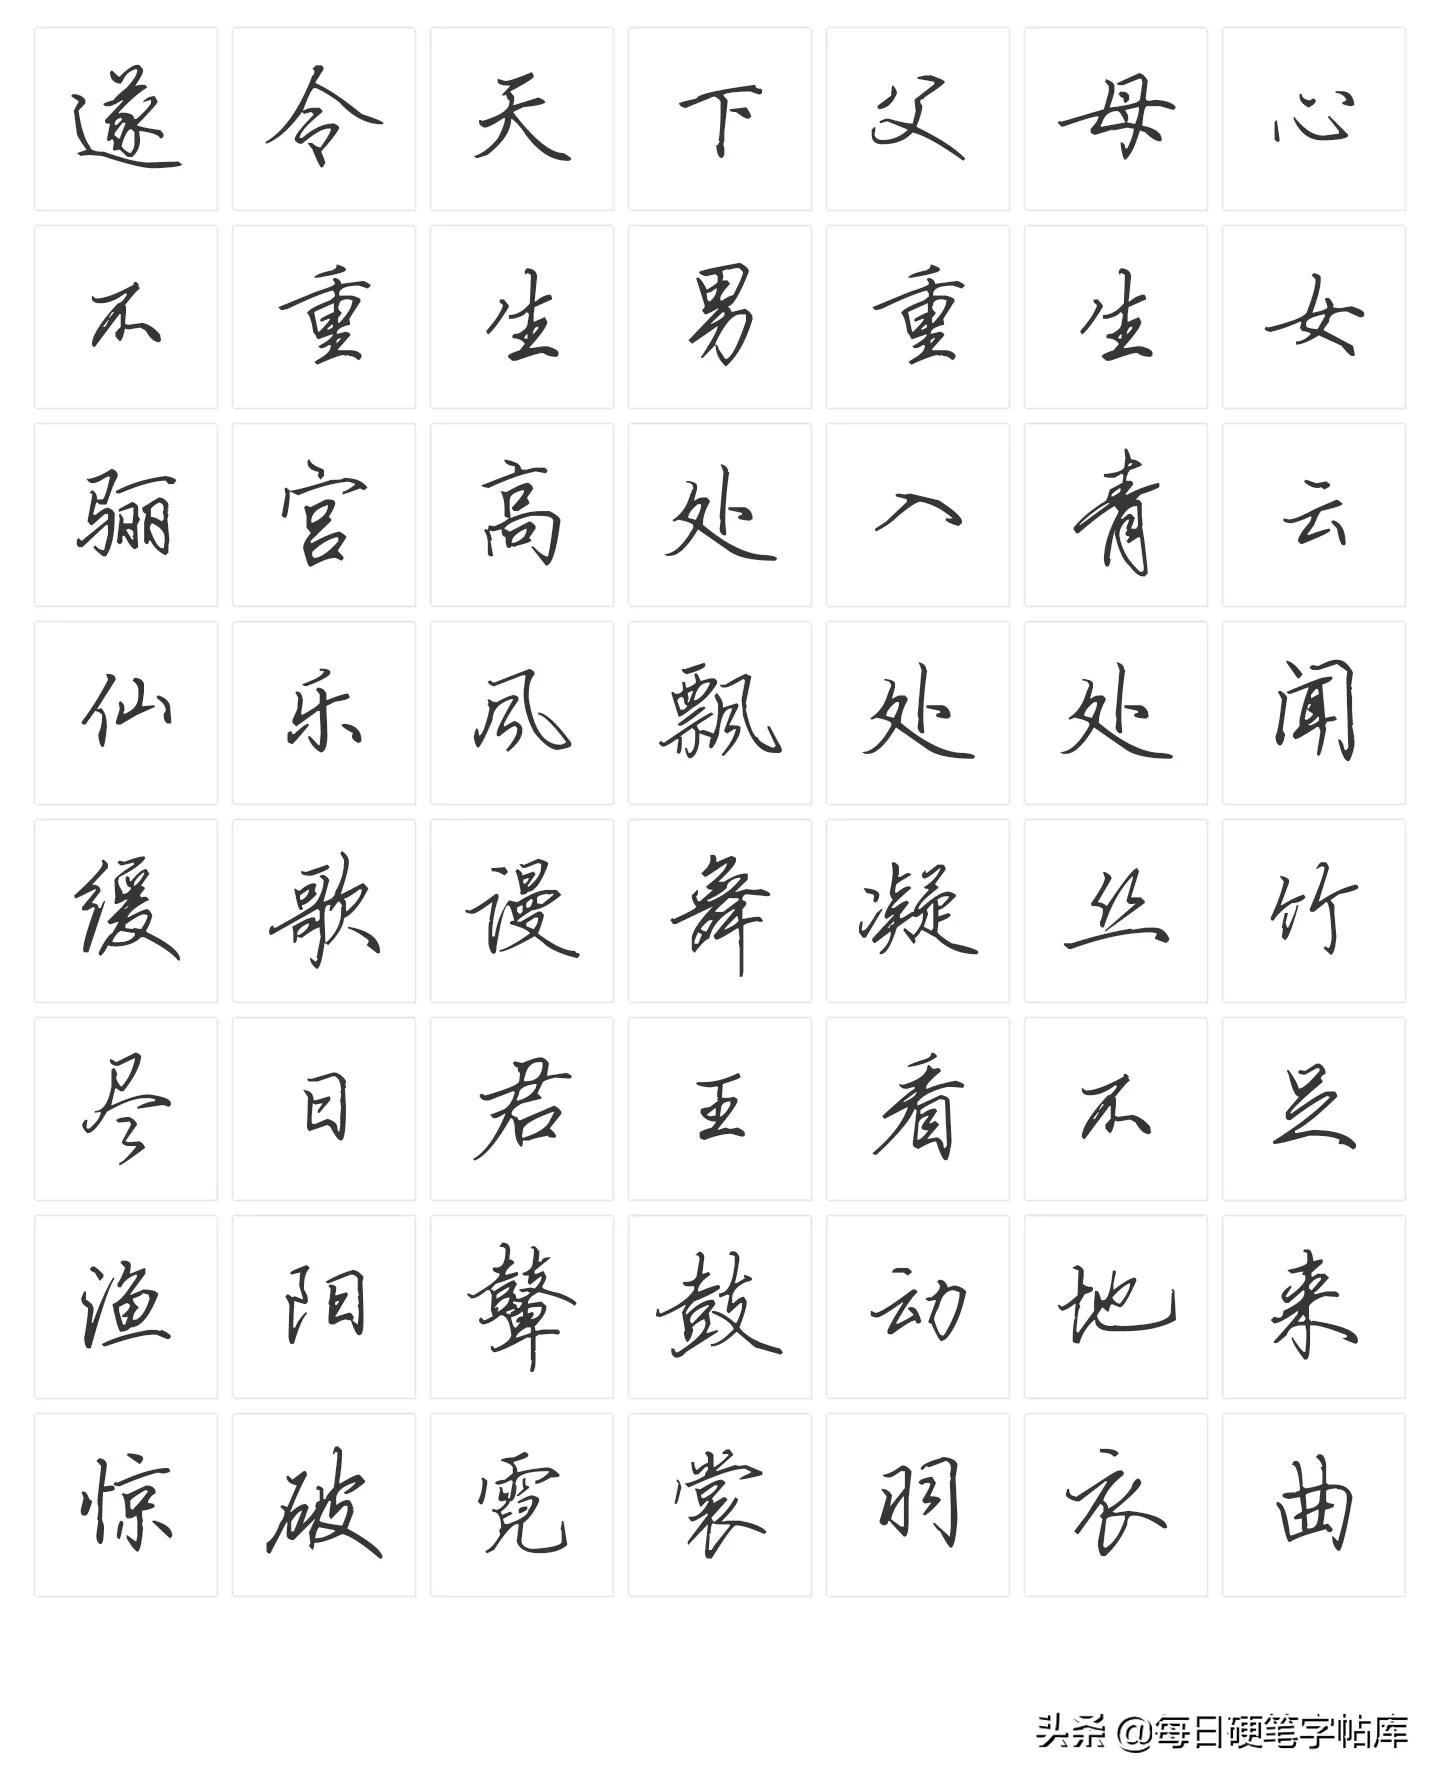 遂令天下父母心
不重生男重生女
骊宫高处入青云
仙乐风飘处处闻
缓歌谩舞凝丝竹
尽日君王看不足
渔阳鼙鼓动地来
惊破霓裳羽衣曲
头条 @每日硬笔字帖库